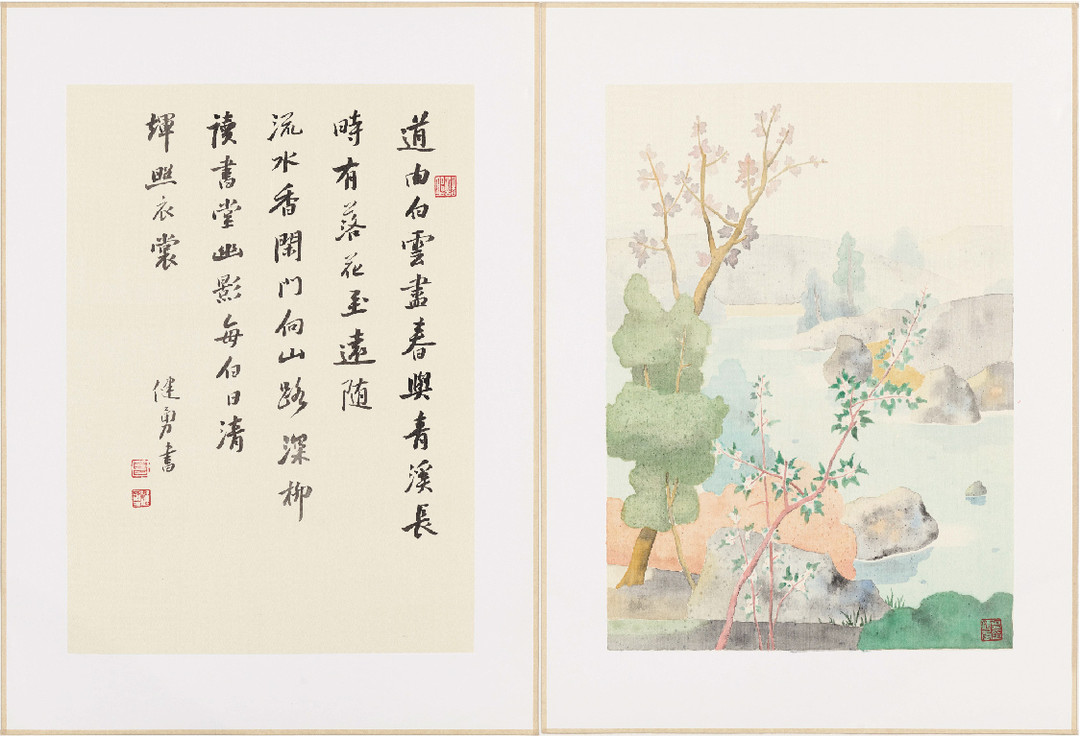 道由白雲盡春與青溪長
時有落花至遠随
流水香閑門向山路深柳
读書堂幽影每白日清
輝照衣裳
健勇書